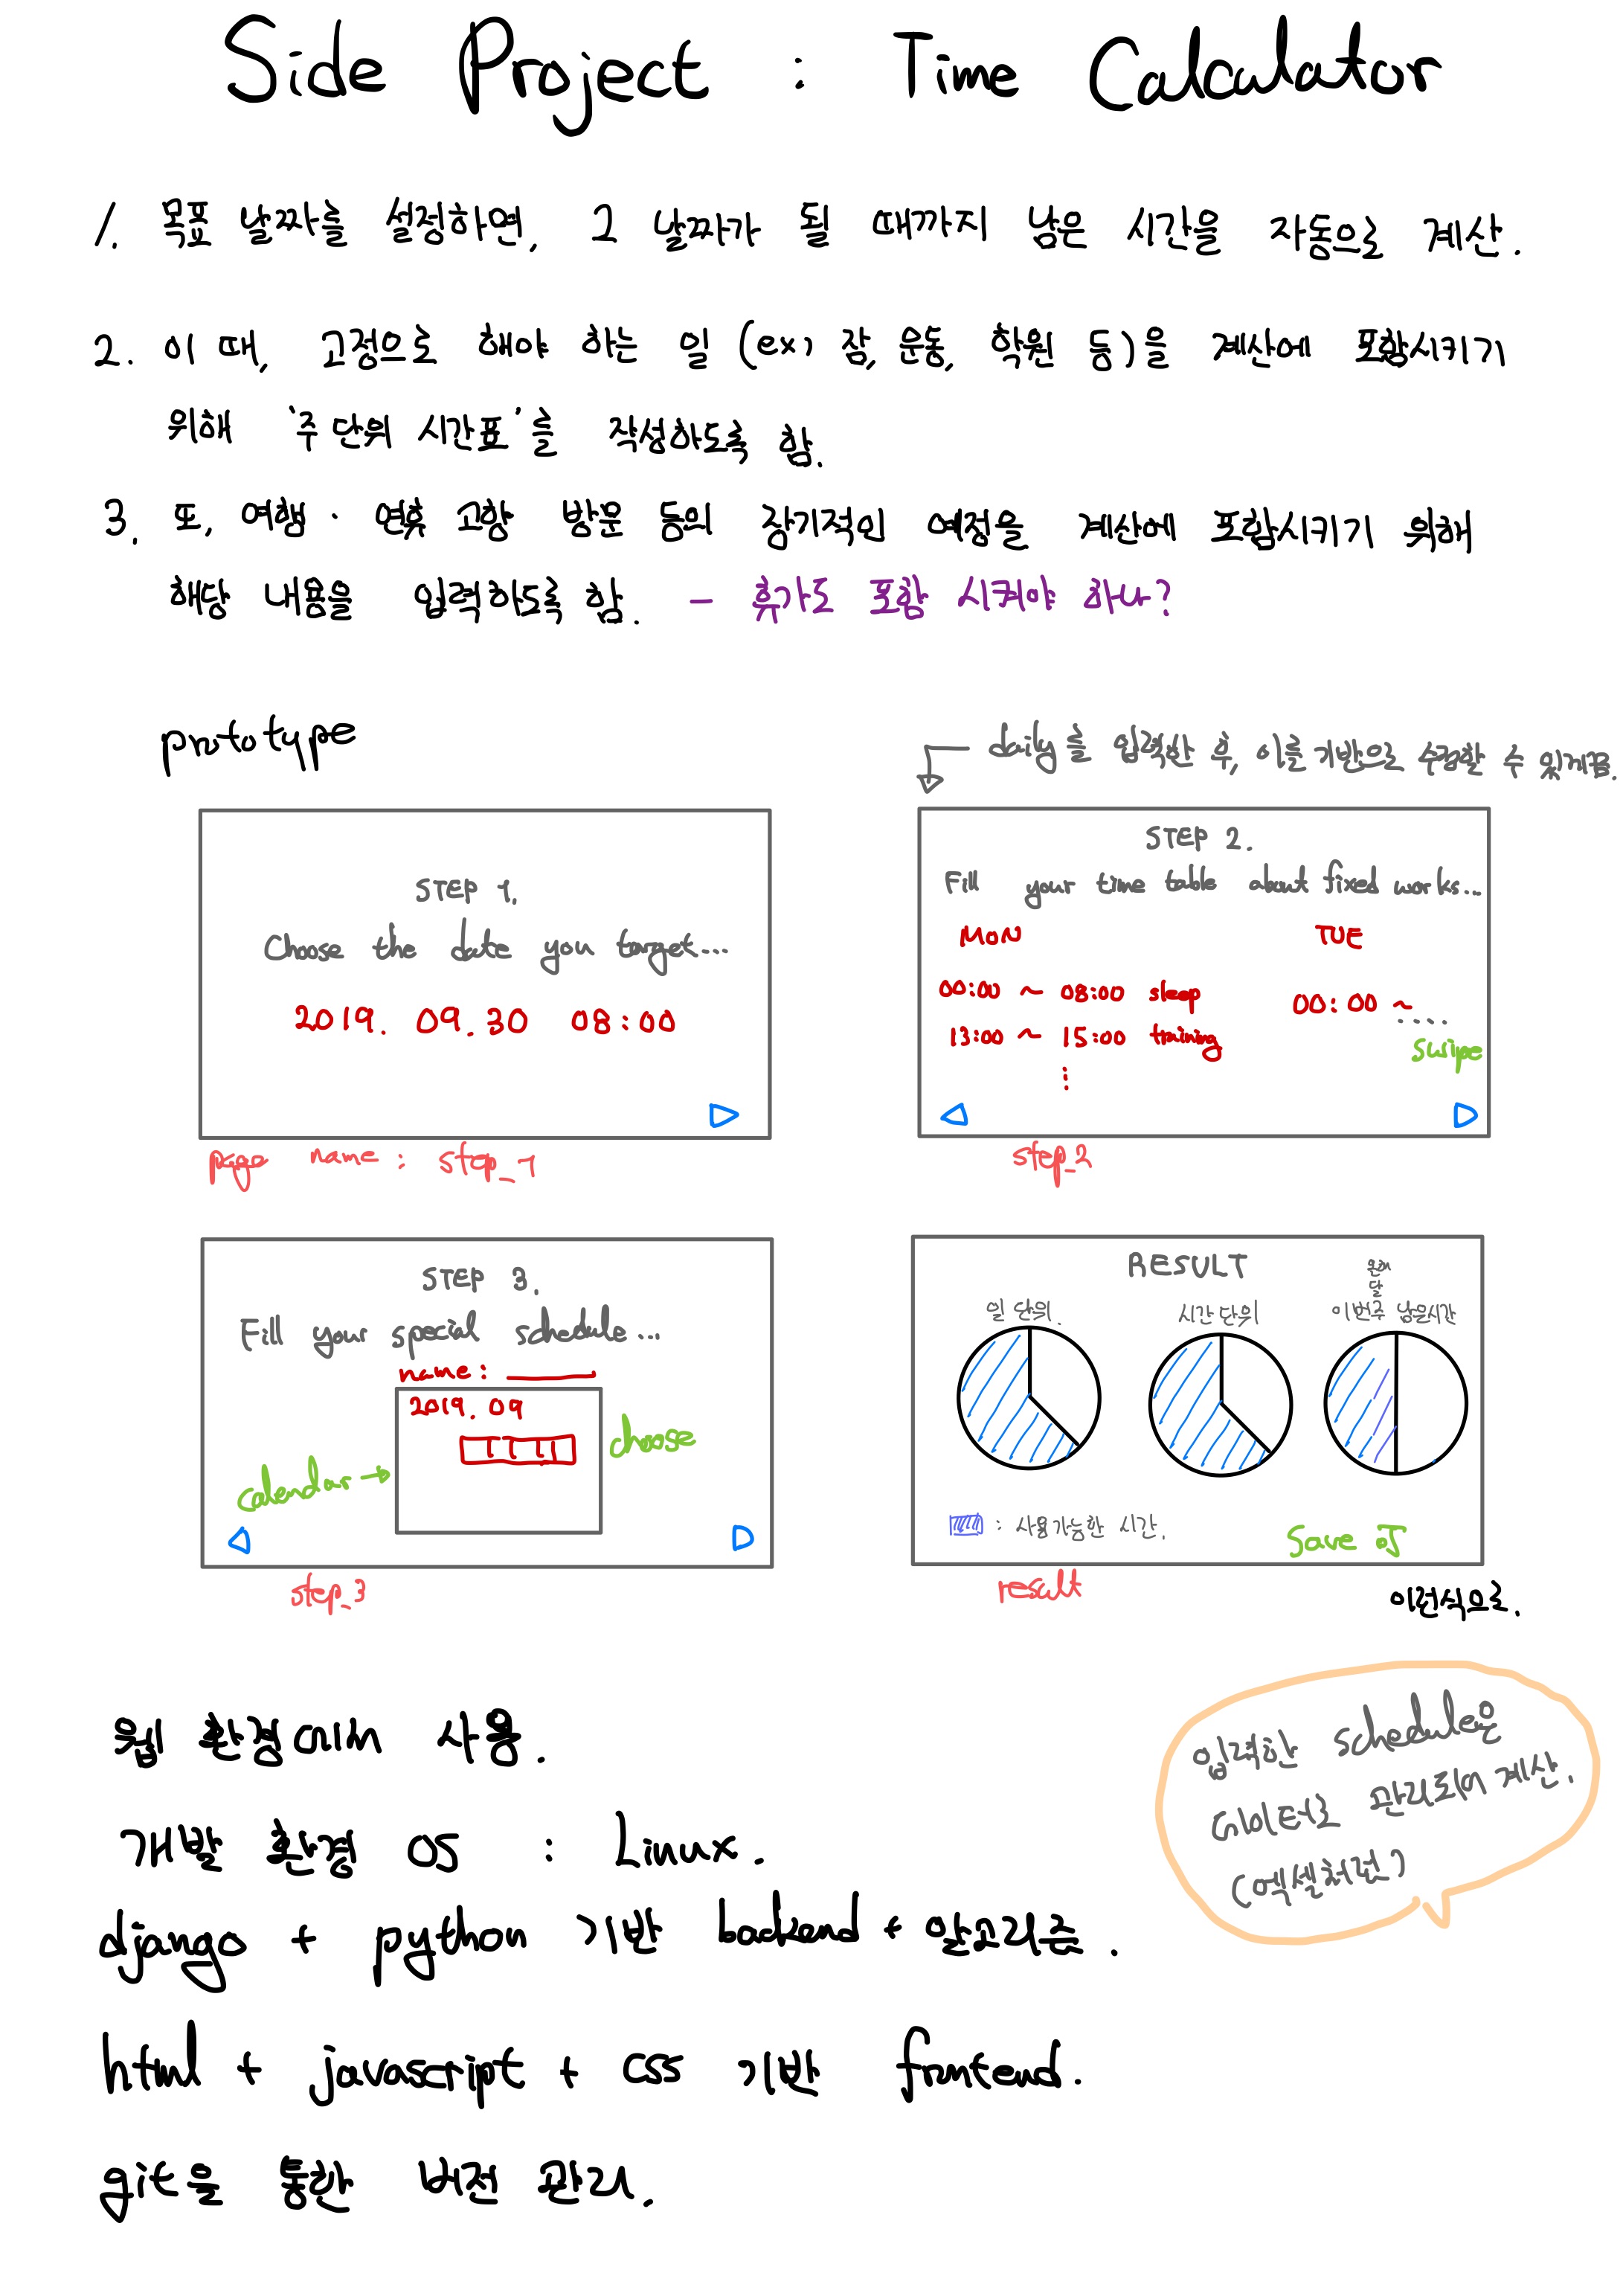 Side Project : Time Calculator
1. 목표 날짜를 설정하면, 그 날짜가 될 때까지 남은 시간을 자동으로 계산.
2. 이 때, 고정으로 해야 하는 일 (ex) 잠, 운동, 학원 등)을 계산에 포함시키기
위해 '주 단위 시간표'를 작성하도록 함.
3. 또, 여행 · 연휴 고향 방문 등의 장기적인 예정을 계산에 포함시키기 위해
해당 내용을 입력하도록 함. - 휴가도 포함 시켜야 하나?
prototype
daily를 입력한 후, 이를 기반으로 수정할 수 있게끔.
STEP 1.
Choose the date you target...
2019. 09. 30 08:00
page name : step_1
STEP 2.
Fill your time table about fixed works...
MON TUE
00:00 ~ 08:00 sleep 00:00 ~ ....
13:00 ~ 15:00 training
swipe
step_2
STEP 3.
Fill your special schedule...
name :
2019. 09
choose
calendar →
step_3
RESULT
일 단위.
시간 단위
달
이번주 남은시간
: 사용가능한 시간.
Save
result
이런식으로.
웹 환경에서 사용.
개발 환경 OS : Linux.
django + python 기반 backend + 알고리즘.
html + javascript + css 기반 frontend.
git을 통한 버전 관리.
입력한 schedule은
데이터로 관리되어 계산.
(엑셀처럼)